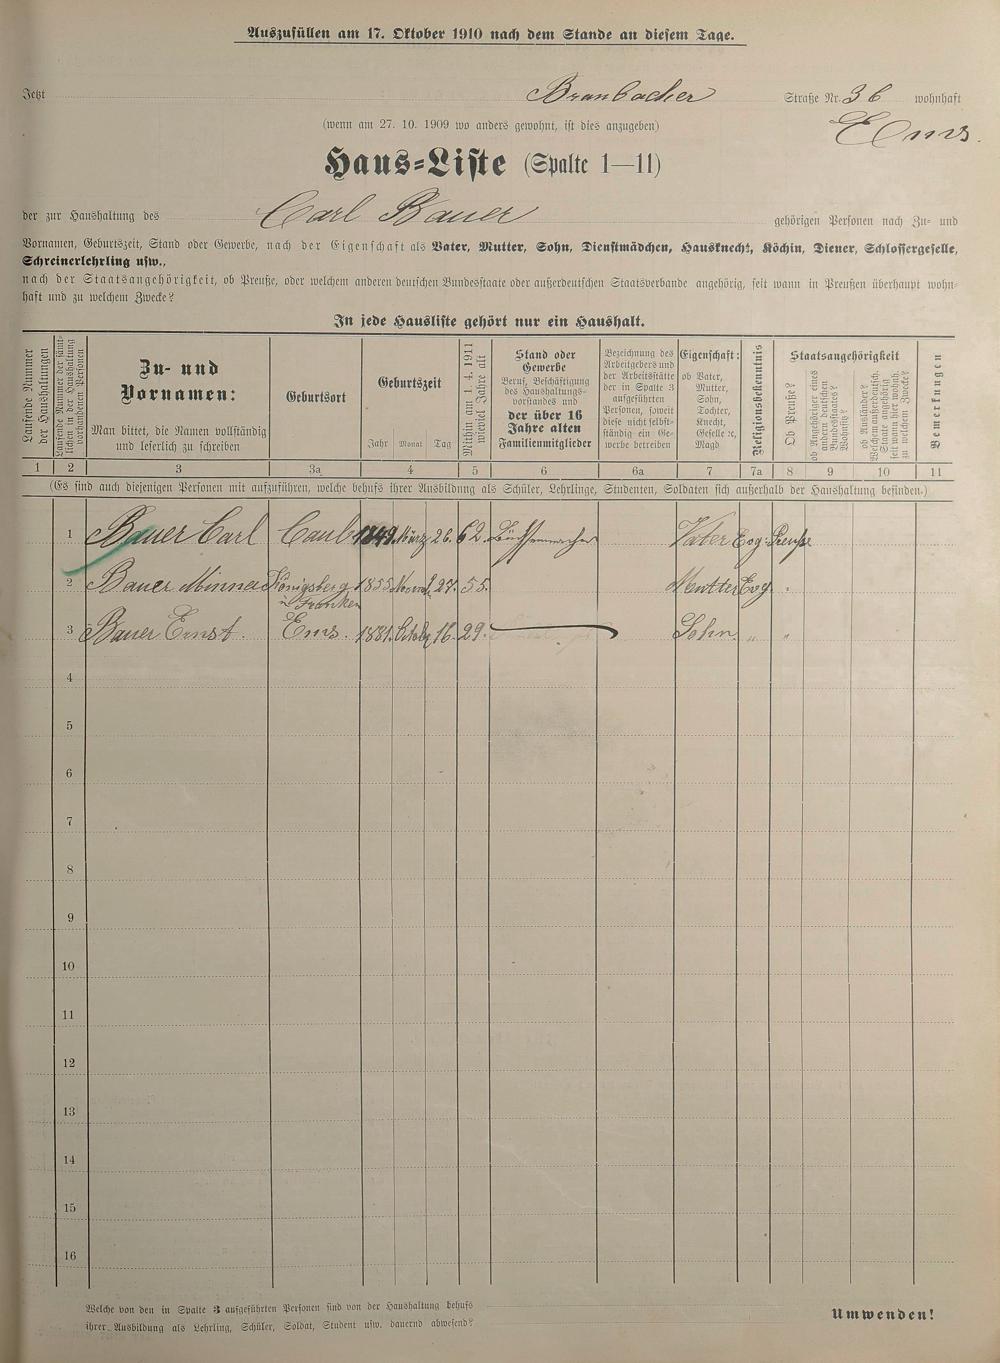 Auszufüllen am 17. Oktober 1910 nach dem Stande an diesem Tage.
Jetzt Braubacher Straße Nr. 36 wohnhaft
Ems.
(wenn am 27. 10. 1909 wo anders gewohnt, ist dies anzugeben)
Haus-Liste (Spalte 1—11)
der zur Haushaltung des Carl Bauer gehörigen Personen nach Zu- und
Vornamen, Geburtszeit, Stand oder Gewerbe, nach der Eigenschaft als Vater, Mutter, Sohn, Dienstmädchen, Hausknecht, Köchin, Diener, Schlossergeselle,
Schreinerlehrling usw.,
nach der Staatsangehörigkeit, ob Preuße, oder welchem anderen deutschen Bundesstaate oder außerdeutschen Staatsverbande angehörig, seit wann in Preußen überhaupt wohn-
haft und zu welchem Zwecke?
In jede Hausliste gehört nur ein Haushalt.
Laufende Nummer
der Haushaltungen
Laufende Nummer der sämt-
lichen in der Haushaltung
vorhandenen Personen
Zu- und
Vornamen:
Man bittet, die Namen vollständig
und leserlich zu schreiben
Geburtsort
Geburtszeit
Jahr Monat Tag
Mithin am 1. 4. 1911
wieviel Jahre alt
Stand oder
Gewerbe
Beruf, Beschäftigung
des Haushaltungs-
vorstandes und
der über 16
Jahre alten
Familienmitglieder
Bezeichnung des
Arbeitgebers und
der Arbeitsstätte
der in Spalte 3
aufgeführten
Personen, soweit
diese nicht selbst-
ständig ein Ge-
werbe betreiben
Eigenschaft:
ob Vater,
Mutter,
Sohn,
Tochter,
Knecht,
Geselle ꝛc,
Magd
Religionsbekenntnis
Staatsangehörigkeit
Ob Preuße?
ob Angehöriger eines
andern deutschen
Bundesstaates?
Wohnsitz?
ob Ausländer?
Welchem außerdeutsch.
Staate angehörig
seit wann hier wohnh.
zu welchem Zwecke?
Bemerkungen
1 2 3 3a 4 5 6 6a 7 7a 8 9 10 11
(Es sind auch diejenigen Personen mit aufzuführen, welche behufs ihrer Ausbildung als Schüler, Lehrlinge, Studenten, Soldaten sich außerhalb der Haushaltung befinden.)
1 Bauer Carl Caub 1849. März 26. 62. Büchsenmacher Vater Evg. Preuße
2 Bauer Minna Königsberg in Franken 1855 Novmb. 27. 55. Mutter Evg. "
3 Bauer Ernst. Ems. 1881. Octobr 16. 29. — Sohn. " "
4
5
6
7
8
9
10
11
12
13
14
15
16
Welche von den in Spalte 3 aufgeführten Personen sind von der Haushaltung behufs
ihrer Ausbildung als Lehrling, Schüler, Soldat, Student usw. dauernd abwesend?
Umwenden!